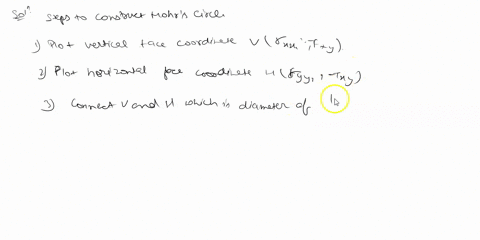 Solⁿ steps to construct Mohr's Circle
1) Plot vertical face coordinate V(σxx, τxy)
2) Plot horizontal face coordinate H(σyy, -τxy)
3) Connect V and H which is diameter of